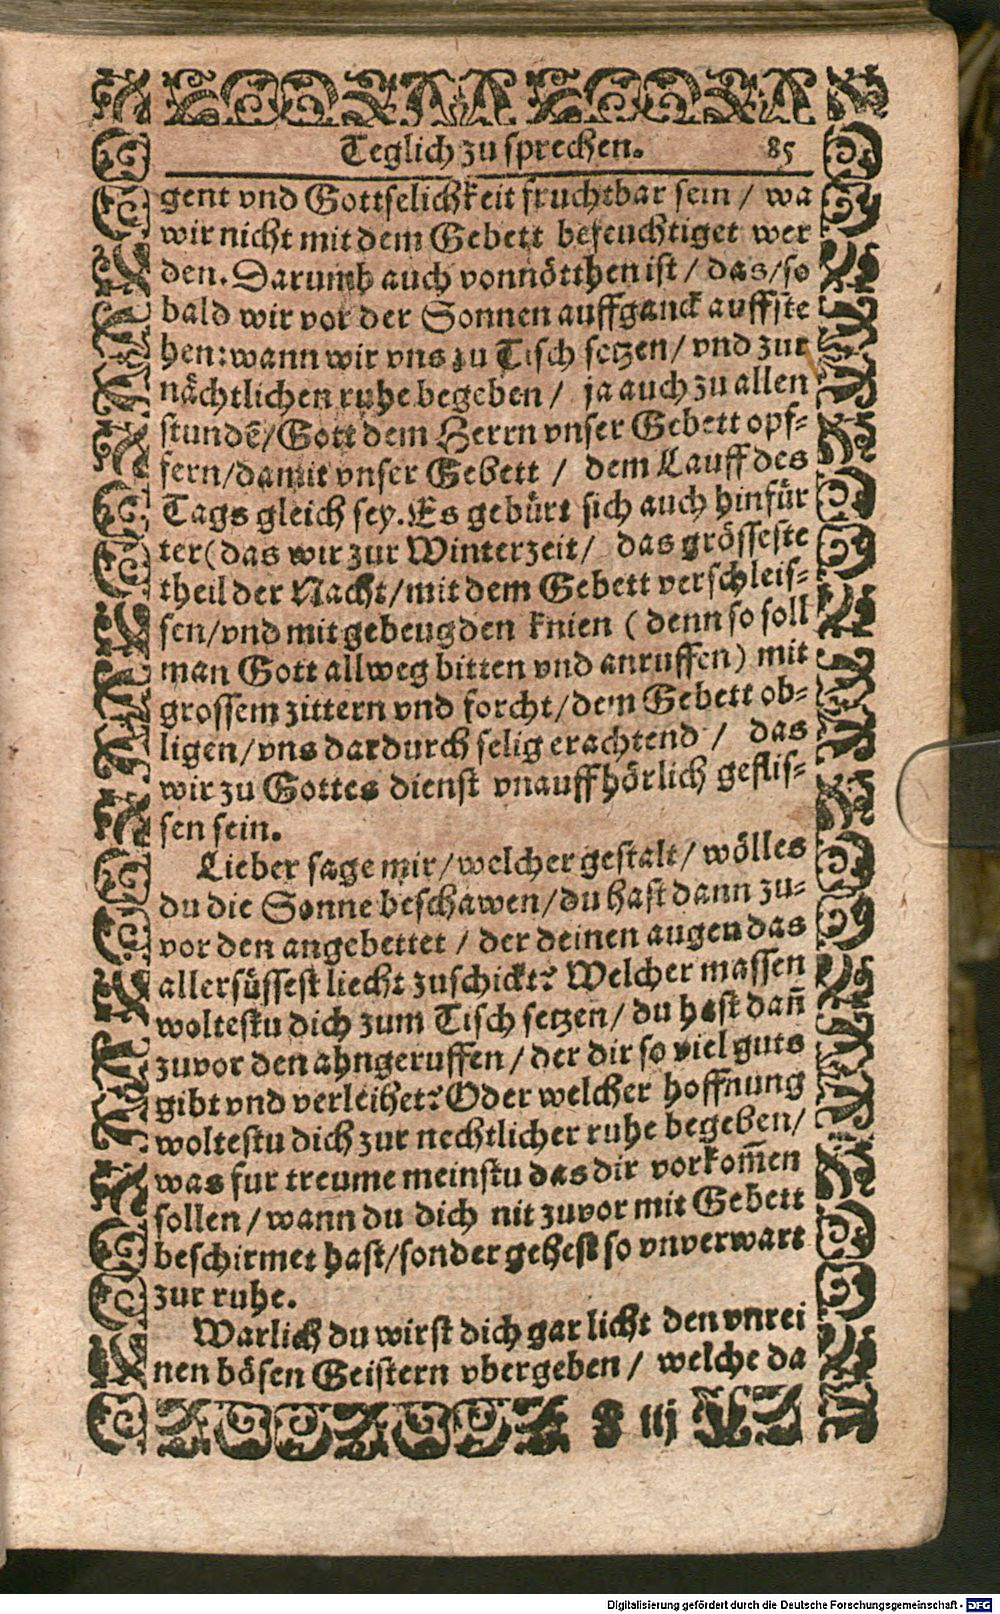 Teglich zu sprechen. 85
gent vnd Gottselichkeit fruchtbar sein / wa
wir nicht mit dem Gebett befeuchtiget wer
den. Darumb auch vonnötthen ist / das / so
bald wir vor der Sonnen auffganck auffste
hen: wann wir vns zu Tisch setzen / vnd zur
nächtlichen ruhe begeben / ja auch zu allen
stundē / Gott dem Herrn vnser Gebett opf-
fern / damit vnser Gebett / dem Lauff des
Tags gleich sey. Es gebürt sich auch hinfür
ter (das wir zur Winterzeit / das grösseste
theil der Nacht / mit dem Gebett verschleis-
sen / vnd mit gebeugden knien ( denn so soll
man Gott allweg bitten vnd anruffen) mit
grossem zittern vnd forcht / dem Gebett ob-
ligen / vns dardurch selig erachtend / das
wir zu Gottes dienst vnauffhörlich geflis-
sen sein.
Lieber sage mir / welcher gestalt / wölles
du die Sonne beschawen / du hast dann zu-
vor den angebettet / der deinen augen das
allersüssest liecht zuschickt? Welcher massen
woltestu dich zum Tisch setzen / du hast dañ
zuvor den ahngeruffen / der dir so viel guts
gibt vnd verleihet? Oder welcher hoffnung
woltestu dich zur nechtlicher ruhe begeben /
was fur treume meinstu das dir vorkom̄en
sollen / wann du dich nit zuvor mit Gebett
beschirmet hast / sonder gehest so vnverwart
zur ruhe.
Warlich du wirst dich gar licht den vnrei
nen bösen Geistern vbergeben / welche da
iij
Digitalisierung gefördert durch die Deutsche Forschungsgemeinschaft - DFG